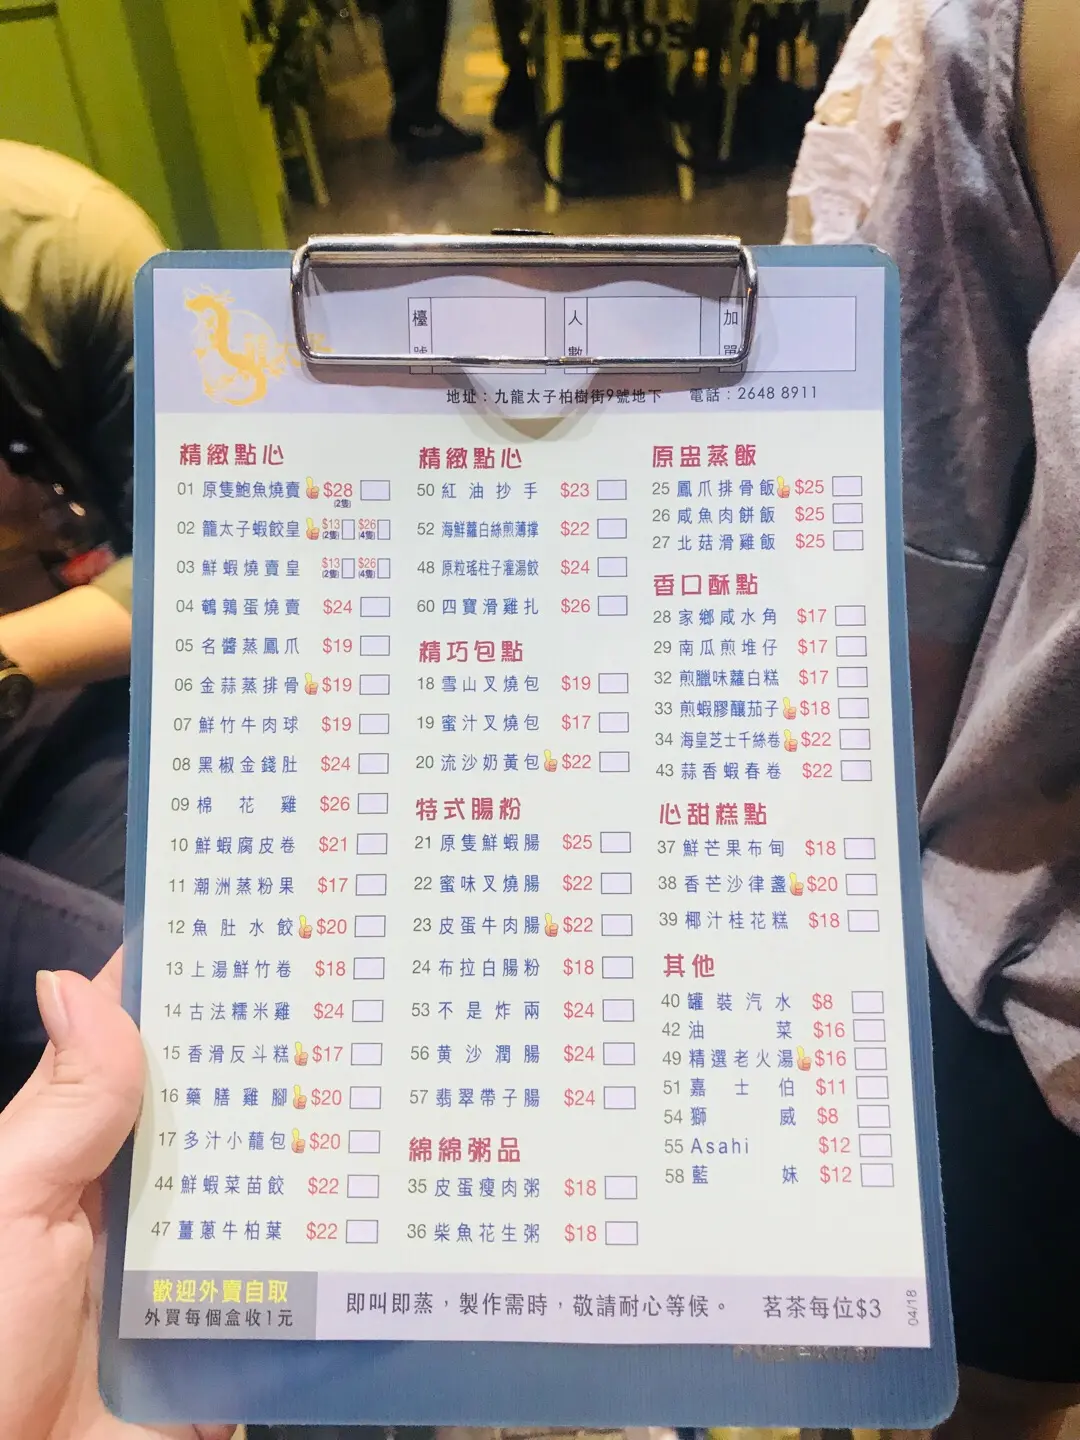 檯號
人數
加單
地址：九龍太子柏樹街9號地下 電話：2648 8911
精緻點心
01 原隻鮑魚燒賣 $28 (2隻)
02 籠太子蝦餃皇 $13 (2隻) $26 (4隻)
03 鮮蝦燒賣皇 $13 (2隻) $26 (4隻)
04 鵪鶉蛋燒賣 $24
05 名醬蒸鳳爪 $19
06 金蒜蒸排骨 $19
07 鮮竹牛肉球 $19
08 黑椒金錢肚 $24
09 棉花雞 $26
10 鮮蝦腐皮卷 $21
11 潮洲蒸粉果 $17
12 魚肚水餃 $20
13 上湯鮮竹卷 $18
14 古法糯米雞 $24
15 香滑反斗糕 $17
16 藥膳雞腳 $20
17 多汁小蘢包 $20
44 鮮蝦菜苗餃 $22
47 薑蔥牛柏葉 $22
精緻點心
50 紅油抄手 $23
52 海鮮蘿白絲煎薄撐 $22
48 原粒瑤柱子灌湯餃 $24
60 四寶滑雞扎 $26
精巧包點
18 雪山叉燒包 $19
19 蜜汁叉燒包 $17
20 流沙奶黃包 $22
特式腸粉
21 原隻鮮蝦腸 $25
22 蜜味叉燒腸 $22
23 皮蛋牛肉腸 $22
24 布拉白腸粉 $18
53 不是炸兩 $24
56 黄沙潤腸 $24
57 翡翠帶子腸 $24
綿綿粥品
35 皮蛋瘦肉粥 $18
36 柴魚花生粥 $18
原盅蒸飯
25 鳳爪排骨飯 $25
26 咸魚肉餅飯 $25
27 北菇滑雞飯 $25
香口酥點
28 家鄉咸水角 $17
29 南瓜煎堆仔 $17
32 煎臘味蘿白糕 $17
33 煎蝦膠釀茄子 $18
34 海皇芝士千絲卷 $22
43 蒜香蝦春卷 $22
心甜糕點
37 鮮芒果布甸 $18
38 香芒沙律盞 $20
39 椰汁桂花糕 $18
其他
40 罐裝汽水 $8
42 油菜 $16
49 精選老火湯 $16
51 嘉士伯 $11
54 獅威 $8
55 Asahi $12
58 藍妹 $12
歡迎外賣自取
外買每個盒收1元
即叫即蒸，製作需時，敬請耐心等候。 茗茶每位$3
04/18